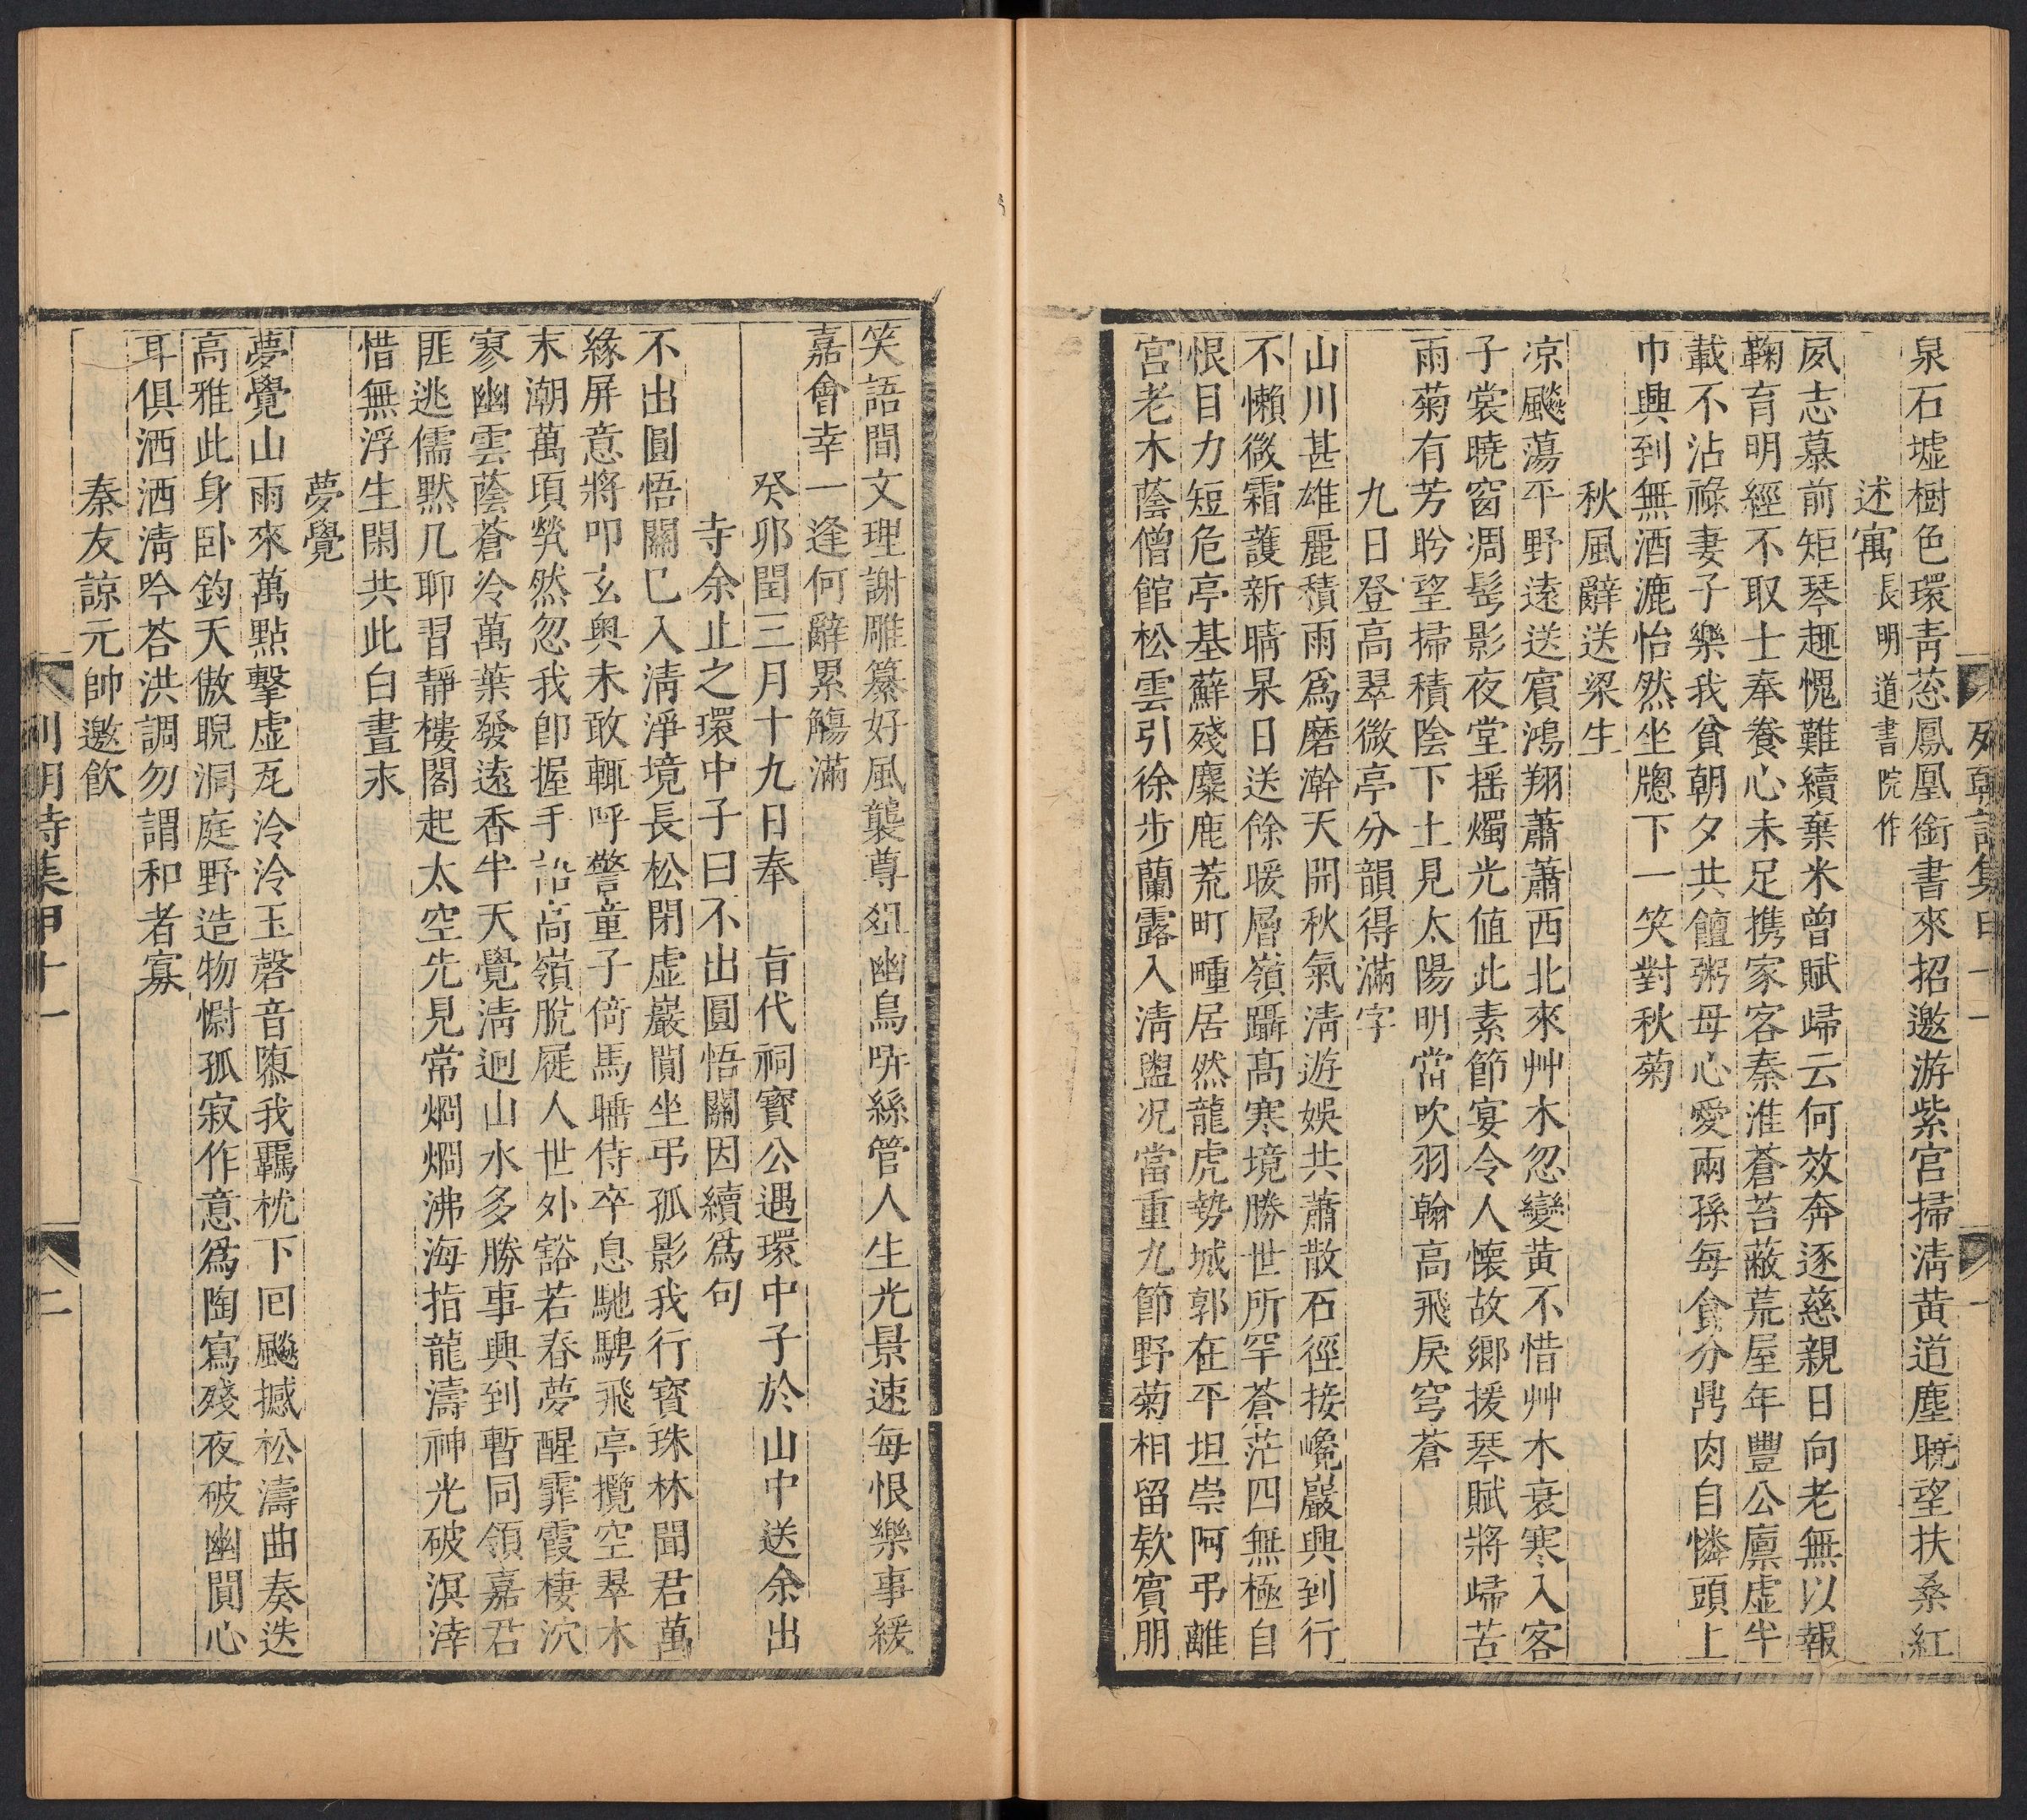 列朝詩集甲十一
泉石墟樹色環靑蔥鳳凰銜書來招邀游紫宮掃淸黃道塵曉望扶桑紅
述寓長明道書院作
夙志慕前矩琴趣愧難續棄米曾賦歸云何效奔逐慈親日向老無以報
鞠育明經不取士奉養心未足攜家客秦淮蒼苔蔽荒屋年豐公廪虛半
載不沾祿妻子樂我貧朝夕共饘粥母心愛兩孫每食分鼎肉自憐頭上
巾興到無酒漉怡然坐牕下一笑對秋菊
秋風辭送梁生
凉飈蕩平野遠送賓鴻翔蕭蕭西北來艸木忽變黃不惜艸木衰寒入客
子裳曉窗凋髩影夜堂搖燭光値此素節宴令人懷故鄉援琴賦將歸苦
雨菊有芳昑望掃積陰下土見太陽明當吹羽翰高飛戾穹蒼
九日登高翠微亭分韻得滿字
山川甚雄麗積雨爲磨澣天開秋氣淸遊娛共蕭散石徑接巉巖興到行
不懶微霜護新晴杲日送餘暖層嶺躡髙寒境勝世所罕蒼茫四無極自
恨目力短危亭基蘚殘麋鹿荒町畽居然龍虎勢城郭在平坦崇阿弔離
宮老木蔭僧館松雲引徐步蘭露入淸盥况當重九節野菊相留欵賓朋
笑語間文理謝雕纂好風襲尊俎幽鳥哢絲管人生光景速每恨樂事緩
嘉會幸一逢何辭累觴滿
癸卯閏三月十九日奉 旨代祠寳公遇環中子於山中送余出
寺余止之環中子曰不出圓悟關因續爲句
不出圓悟關已入淸淨境長松閉虛巖閴坐弔孤影我行寳珠林聞君萬
緣屏意將叩玄奥未敢輒呼警童子倚馬睡侍卒息馳騁飛亭攬空翠木
末潮萬頃煢然忽我卽握手詣高嶺脫屣人世外豁若春夢醒霏霞棲泬
寥幽雲蔭蒼冷萬葉發遠香半天覺淸迥山水多勝事興到暫同領嘉君
匪逃儒黙几聊習靜樓閣起太空先見常烱烱沸海指龍濤神光破溟涬
惜無浮生閑共此白晝永
夢覺
夢覺山雨來萬點擊虛瓦泠泠玉磬音隳我羈枕下囘飈撼松濤曲奏迭
高雅此身卧鈞天傲睨洞庭野造物慰孤寂作意爲陶寫殘夜破幽閴心
耳俱洒洒淸吟荅洪調勿謂和者寡
秦友諒元帥邀飲
列朝詩集甲十一 二